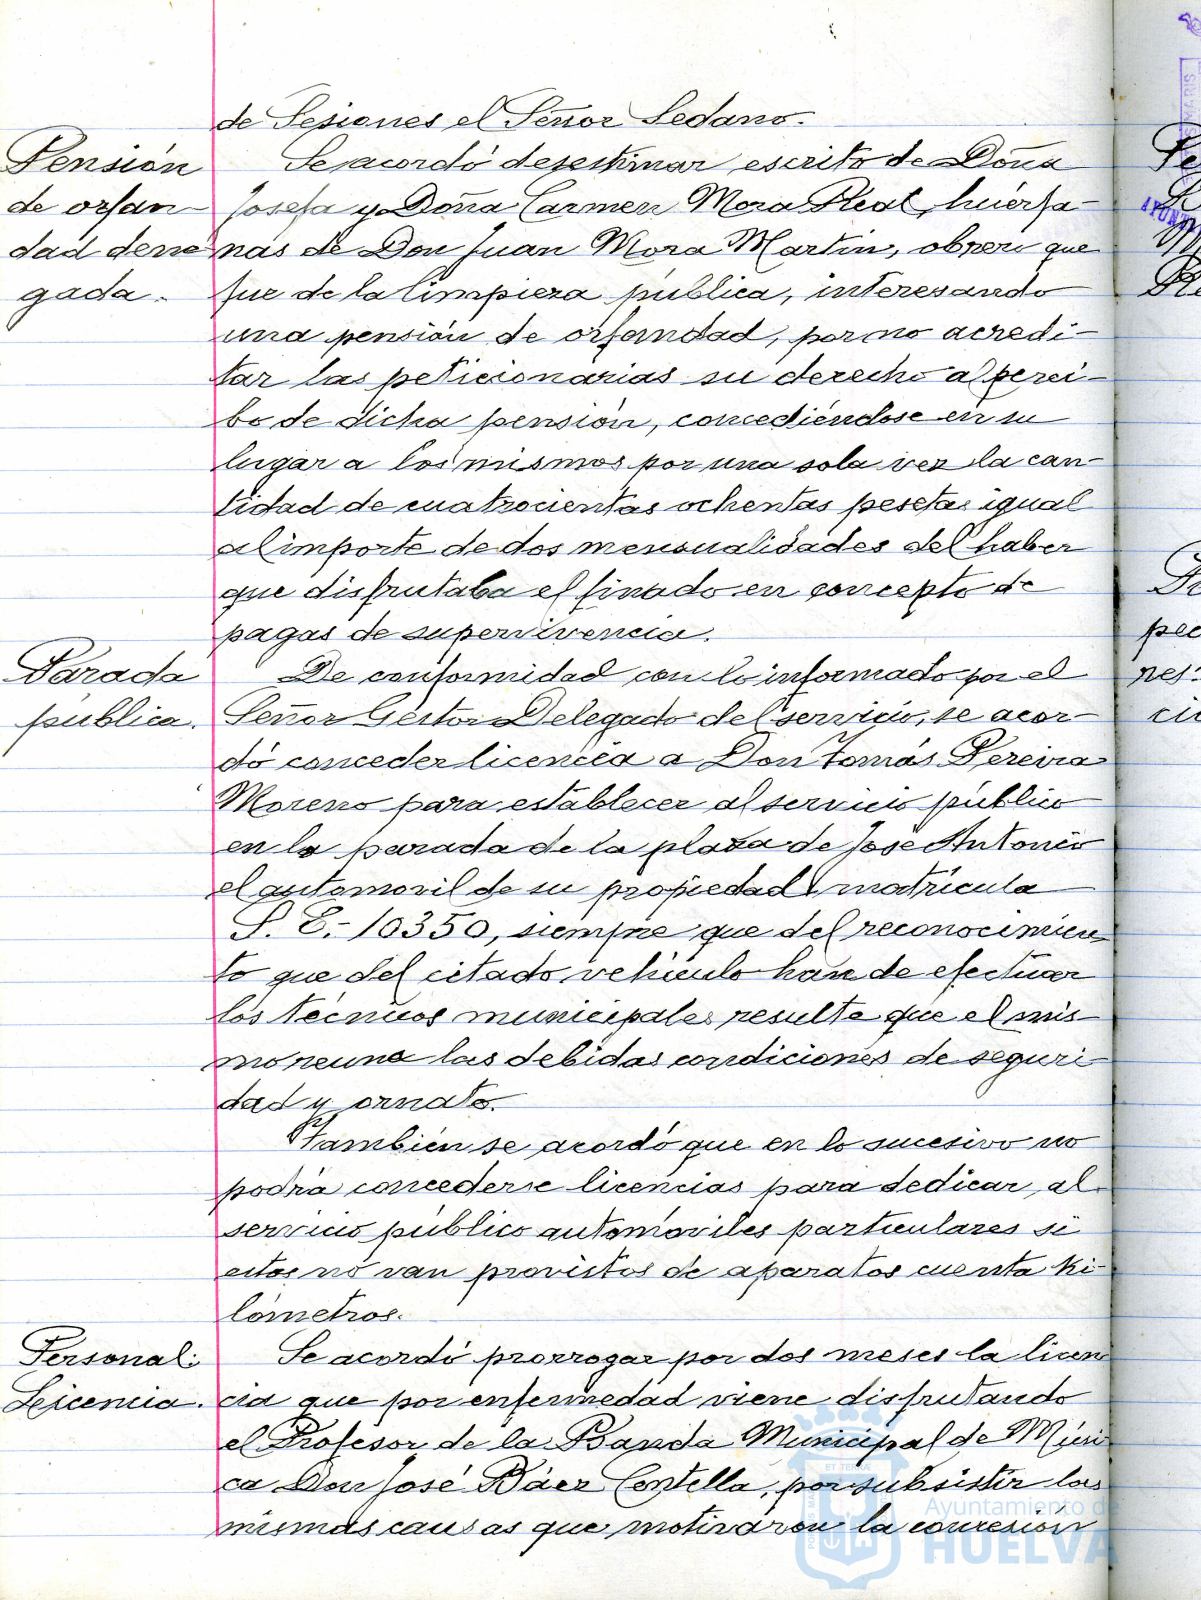 de Sesiones el Señor Sedano.
Pensión
de orfan-
dad dene
gada.
Se acordó desestimar escrito de Doña
Josefa y Doña Carmen Mora Real, huérfa-
nas de Don Juan Mora Martin, obrero que
fue de la limpieza pública, interesando
una pensión de orfandad, por no acredi-
tar las peticionarias su derecho al perci-
bo de dicha pensión, concediéndose en su
lugar a los mismos por una sola vez la can-
tidad de cuatrocientas ochentas pesetas igual
al importe de dos mensualidades del haber
que disfrutaba el finado en concepto de
pagas de supervivencia.
Parada
pública.
De conformidad con lo informado por el
Señor Gestor Delegado del servicio, se acor-
dó conceder licencia a Don Tomás Pereira
Moreno para establecer al servicio público
en la parada de la plaza de José Antonio
el automovil de su propiedad matrícula
S. E.- 10350, siempre que del reconocimien-
to que del citado vehículo han de efectuar
los técnicos municipales resulte que el mis-
mo reuna las debidas condiciones de seguri-
dad y ornato.
También se acordó que en lo sucesivo no
podrá concederse licencias para dedicar al
servicio público automóviles particulares si
estos no van provistos de aparatos cuenta ki-
lómetros.
Personal:
Licencia.
Se acordó prorrogar por dos meses la licen
cia que por enfermedad viene disfrutando
el Profesor de la Banda Municipal de Músi
ca Don José Báez Centella, por subsistir las
mismas causas que motivaron la concesión
Ayuntamiento de
HUELVA